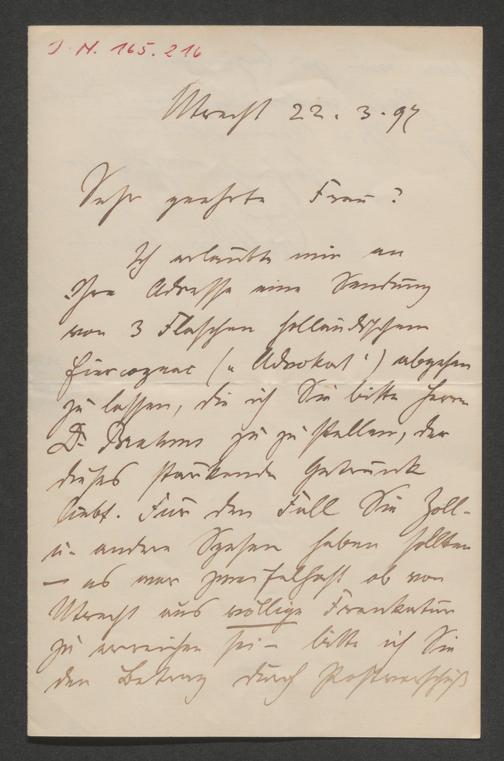 J. N. 165.216
Utrecht 22. 3. 97
Sehr geehrte Frau!
Ich erlaubte mir an
Ihre Adresse eine Sendung
von 3 Flaschen holländischem
Eiercognac („Advokat“) abgehen
zu lassen, die ich Sie bitte Herrn
Dr. Brahms zu zu stellen, der
dieses stärkende Getränk
liebt. Für den Fall Sie Zoll-
u. andere Spesen haben sollten
— es war zweifelhaft ob von
Utrecht aus völlige Frankatur
zu erreichen sei — bitte ich Sie
den Betrag durch Postvorschuß